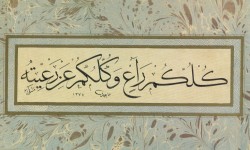 كلكم راع وكلكم عن رعيته